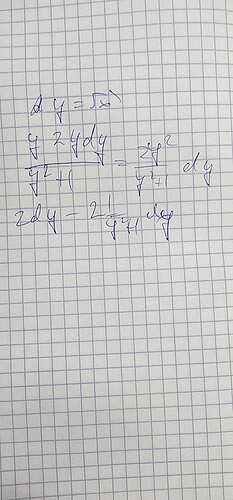 d y = √x
y 2y dy / y²+1 = 2y² / y²+1 dy
2dy - 2 1/y²+1 dy